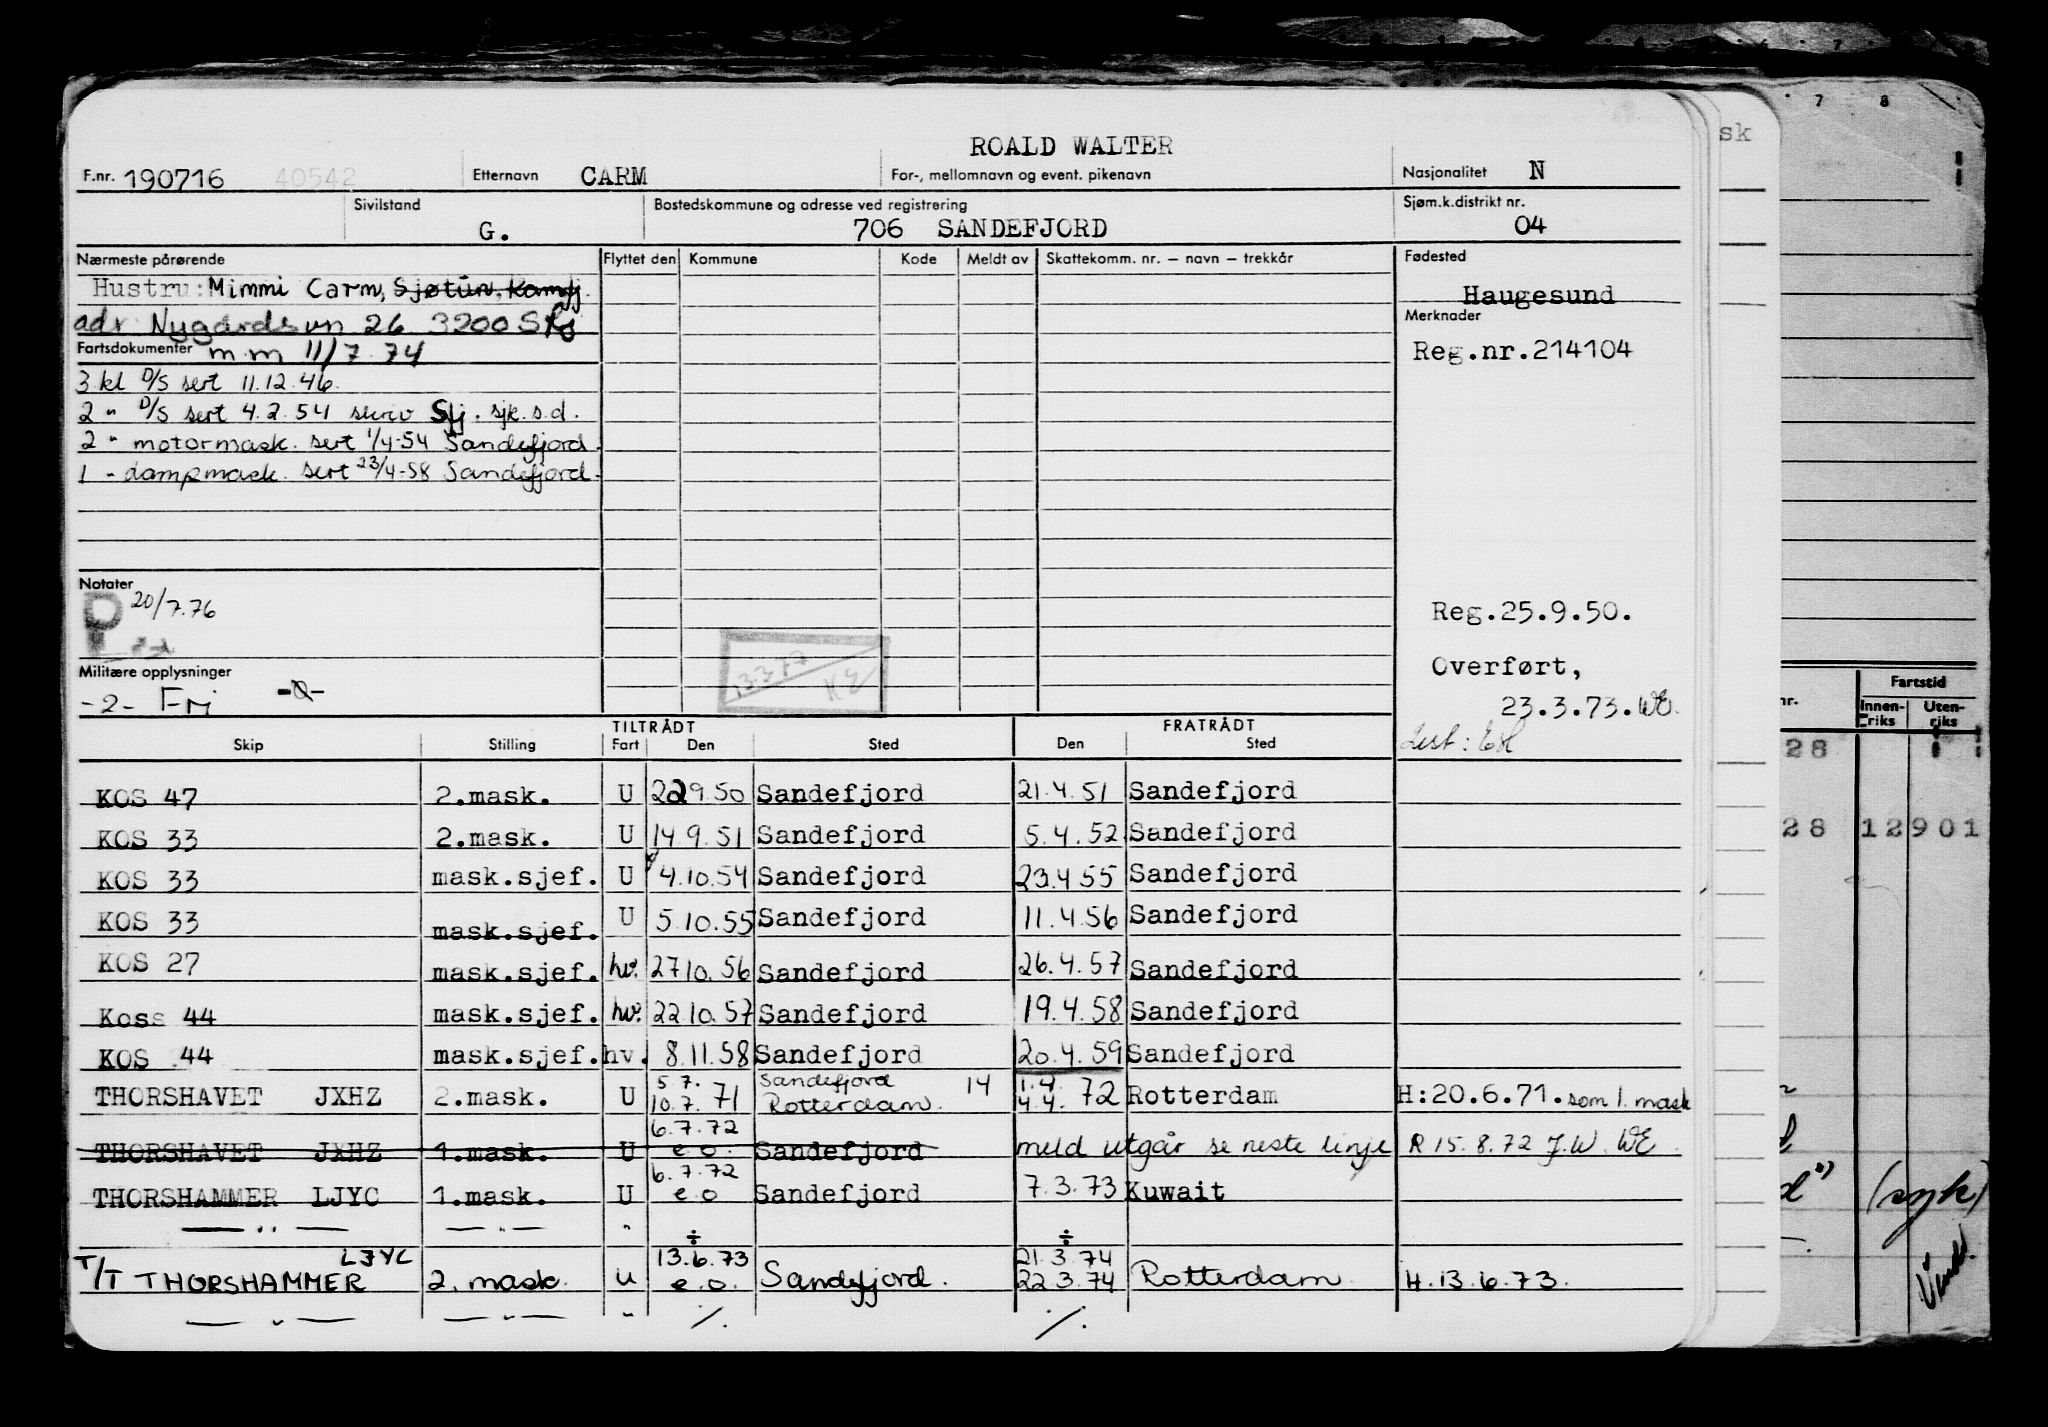 ROALD WALTER
F.nr. 190716 40542 Etternavn CARM For-, mellomnavn og event. pikenavn Nasjonalitet N
Sivilstand G. Bostedskommune og adresse ved registrering 706 SANDEFJORD Sjøm.k.distrikt nr. 04
Nærmeste pårørende Flyttet den Kommune Kode Meldt av Skattekomm. nr. – navn – trekkår Fødested
Hustru: Mimmi Carm, Sjøtun, Kamfj. Haugesund
adr. Nygårdsvn 26 3200 Sfj Merknader
Fartsdokumenter m m 11/7.74 Reg.nr.214104
3 kl D/S sert 11.12.46.
2 " D/S sert 4.2.54 skriv Sfj. sjk.s.d.
2 " motormask. sert 1/4-54 Sandefjord.
1 - dampmask. sert 23/4-58 Sandefjord.
Notater
P 20/7.76 Reg.25.9.50.
13.3.77 KE
Militære opplysninger Overført,
-2- Fri -0- 23.3.73. WE.
TILTRÅDT FRATRÅDT
Skip Stilling Fart Den Sted Den Sted
KOS 47 2.mask. U 22 9.50 Sandefjord 21.4.51 Sandefjord
KOS 33 2.mask. U 14 9.51 Sandefjord 5.4.52 Sandefjord
KOS 33 mask.sjef. U 4.10.54 Sandefjord 23.4 55 Sandefjord
KOS 33 mask.sjef. U 5.10.55 Sandefjord 11.4.56 Sandefjord
KOS 27 mask.sjef. hv. 27 10.56 Sandefjord 26.4.57 Sandefjord
Koss 44 mask.sjef. hv. 22.10.57 Sandefjord 19.4.58 Sandefjord
KOS 44 mask.sjef. hv. 8.11.58 Sandefjord 20.4.59 Sandefjord
5.7. Sandefjord 14 1.4.
THORSHAVET JXHZ 2.mask. U 10.7.71 Rotterdam. 4.4. 72 Rotterdam H:20.6.71. som 1. mask
6.7.72
THORSHAVET JXHZ 1.mask. U e o. Sandefjord meld utgår se neste linje R 15.8.72 J.W. WE
6.7.72
THORSHAMMER LJYC 1.mask. U e o Sandefjord 7.3.73 Kuwait
— " — — " — " ÷ ÷
LJYC 13.6.73 21.3.74
T/T THORSHAMMER 2. mask. U e.o. Sandefjord. 22.3.74 Rotterdam H.13.6.73.
— " — — " — " ./. ./.
7 8
sk
nr. Fartstid
Innen-riks Uten-riks
28
28 12901
(syk)